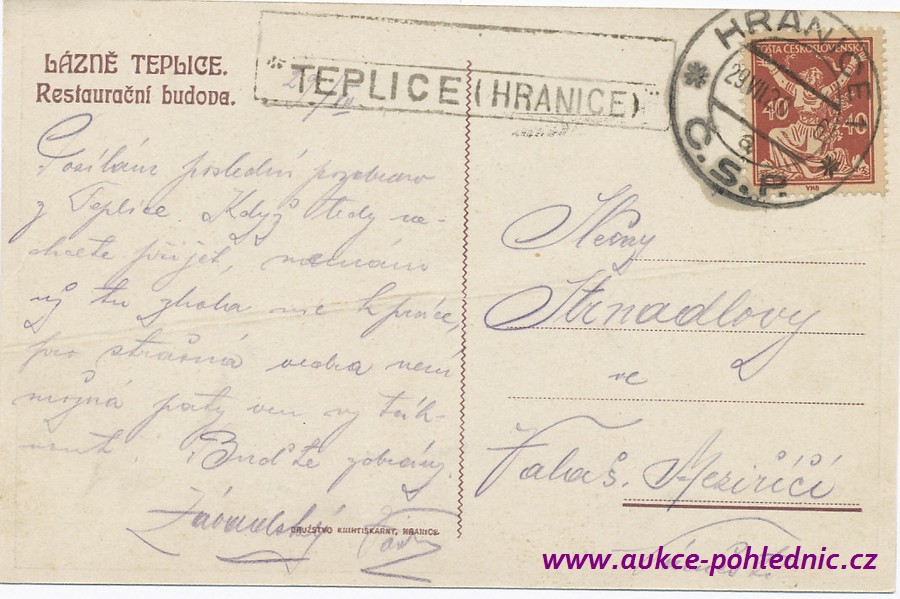 LÁZNĚ TEPLICE.
Restaurační budova.
"TEPLICE (HRANICE)"
HRANICE 1
29.VII.2
a
Č.S.P.
POŠTA ČESKOSLOVENSKÁ
40 40
VHB
Posílám poslední pozdrav
z Teplice. Když tedy ne-
chcete přijet, nemám
už tu zhola nic k práce,
pro strašná vedra není
možná paty ven vy táh-
nout. Buďte zdrávy.
Závadský
DRUŽSTVO KNIHTISKÁRNY, HRANICE.
Slečny
Strnadlovy
ve
Valaš. Meziříčí
www.aukce-pohlednic.cz